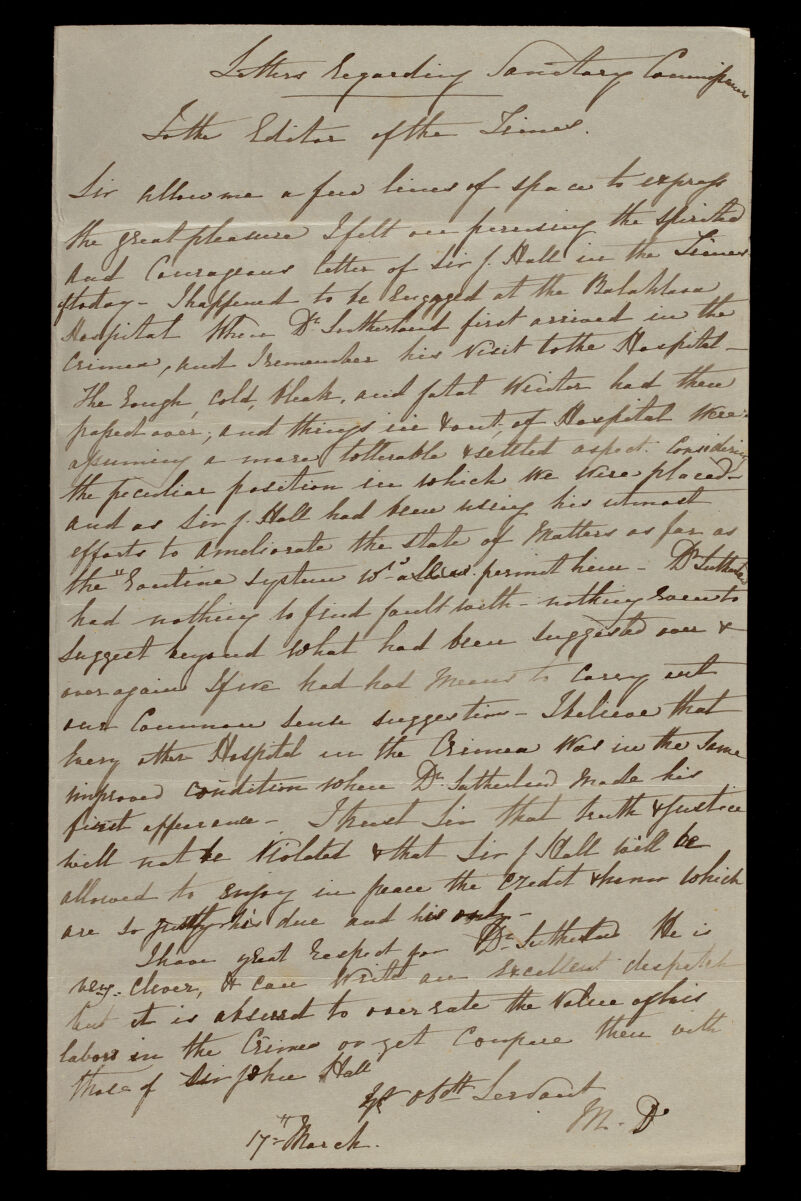 Letters Regarding Sanitary Commissioners
To the Editor of the Times.
Sir allow me a few lines of space to express
the great pleasure I felt on perusing the spirited
and Courageous letter of Sir J. Hall in the Times
of today - I happened to be Engaged at the Balaklava
Hospital When Dr. Sutherland first arrived in the
Crimea, and I remember his visit to the Hospital -
The Rough cold, bleak, and fatal Winter had then
passed over, and things in & out, of Hospital were
assuming a more tolerable & settled aspect. Considering
the peculiar position in which we were placed -
and as Sir J. Hall had been using his utmost
efforts to ameliorate the state of Matters as far as
the "Routine system wd. allow permit him - Dr Sutherland
had nothing to find fault with - nothing even to
suggest beyond what had been suggested over &
over again If we had had Means to Carry out
our Common sense suggestions - I believe that
Every other Hospital in the Crimea Was in the same
improved condition when Dr. Sutherland Made his
first appearance - I trust Sir that truth & Justice
will not be Violated & that Sir J Hall will be
allowed to enjoy in peace the credit & honor which
are so justly his due and his only -
I have great Respect for Dr. Sutherland He is
very clever, & can Write an Excellent despatch
but it is absurd to over rate the value of his
labors in the Crimea or yet Compare them with
those of Sir John Hall
Yr obdt Servant
M. D
17th March.